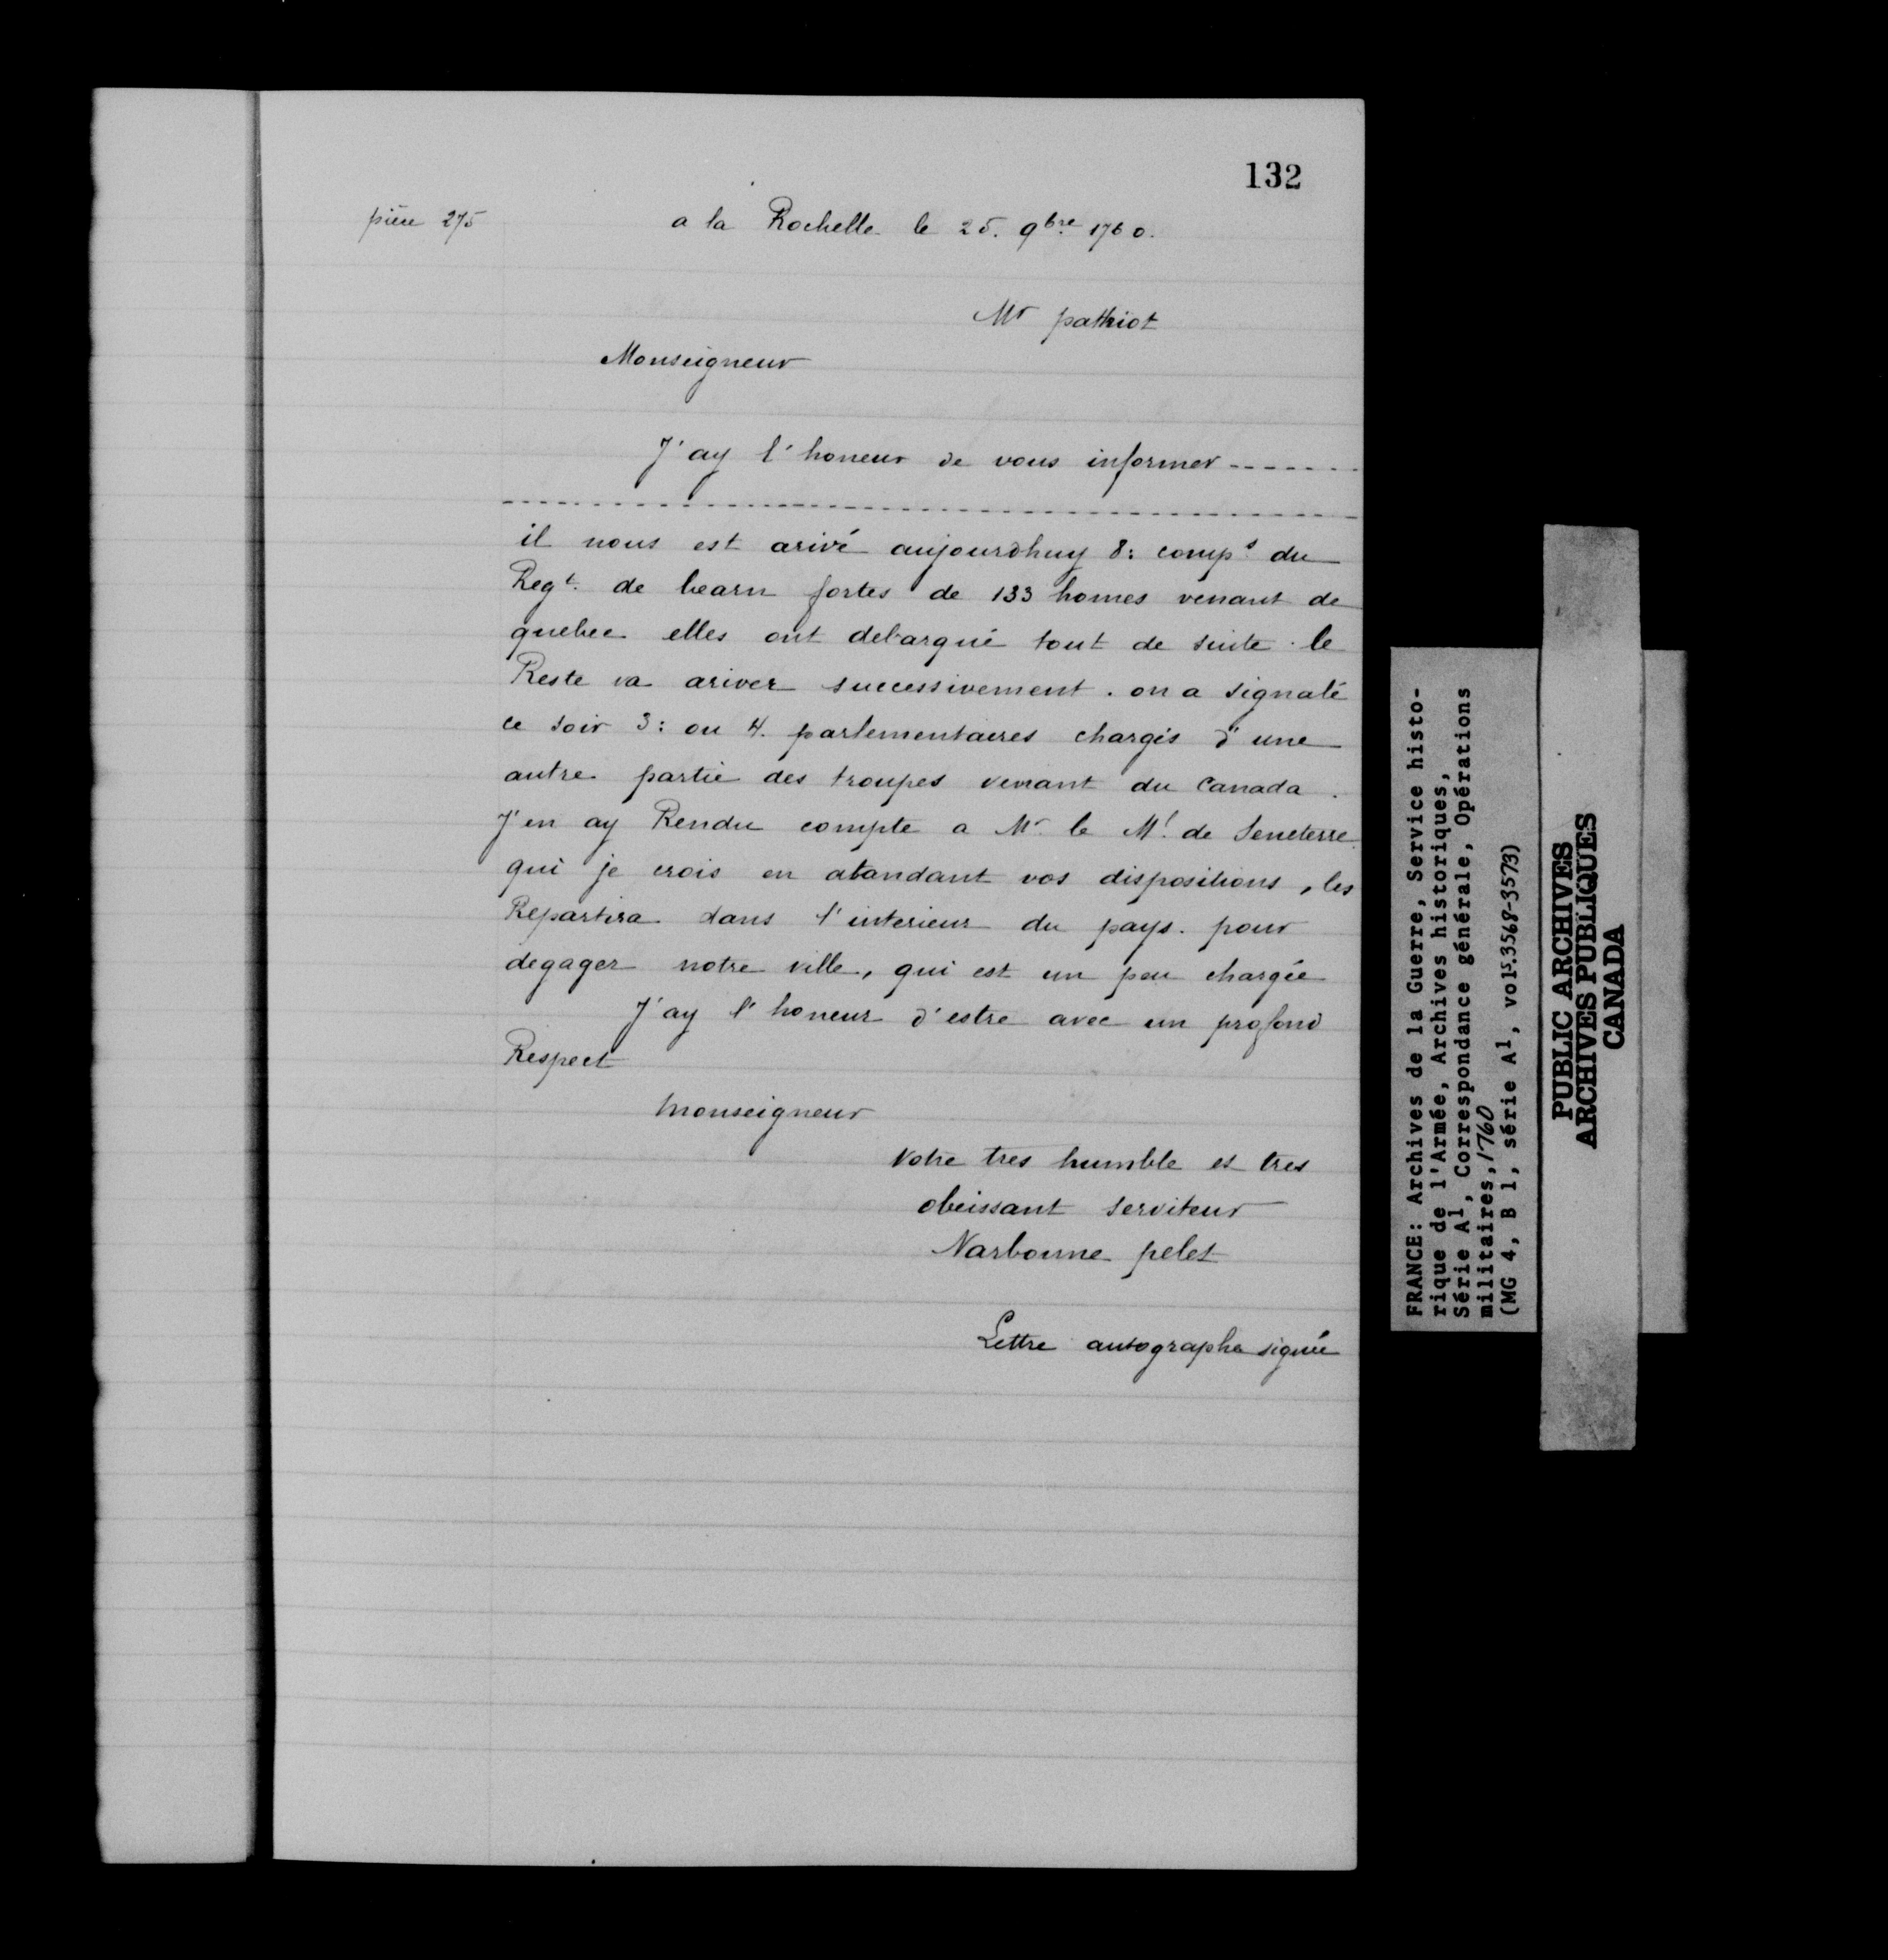 132
pièce 275
a la Rochelle le 25. 9bre 1760.
Mr pathiot
Monseigneur
J'ay l'honeur de vous informer-------
il nous est arivé aujourdhuy 8: comps. du
Regt. de bearn fortes de 133 homes venant de
quebec elles ont debarqué tout de suite. le
Reste va ariver successivement. on a signalé
ce soir 3: ou 4. parlementaires chargés d'une
autre partie des troupes venant du Canada.
J'en ay Rendu compte a Mr. le Ml. de Seneterre
qui je crois en atandant vos dispositions, les
Repartira dans l'interieur du pays. pour
degager notre ville, qui est un peu chargée
J'ay l'honeur d'estre avec un profond
Respect
Monseigneur
Votre tres humble et tres
obeissant serviteur
Narbonne pelet
Lettre autographe signée
FRANCE: Archives de la Guerre, Service histo-
rique de l'Armée, Archives historiques,
Série A1, Correspondance générale, Opérations
militaires, 1760
(MG 4, B 1, série A1, vols.3568-3573)
PUBLIC ARCHIVES
ARCHIVES PUBLIQUES
CANADA